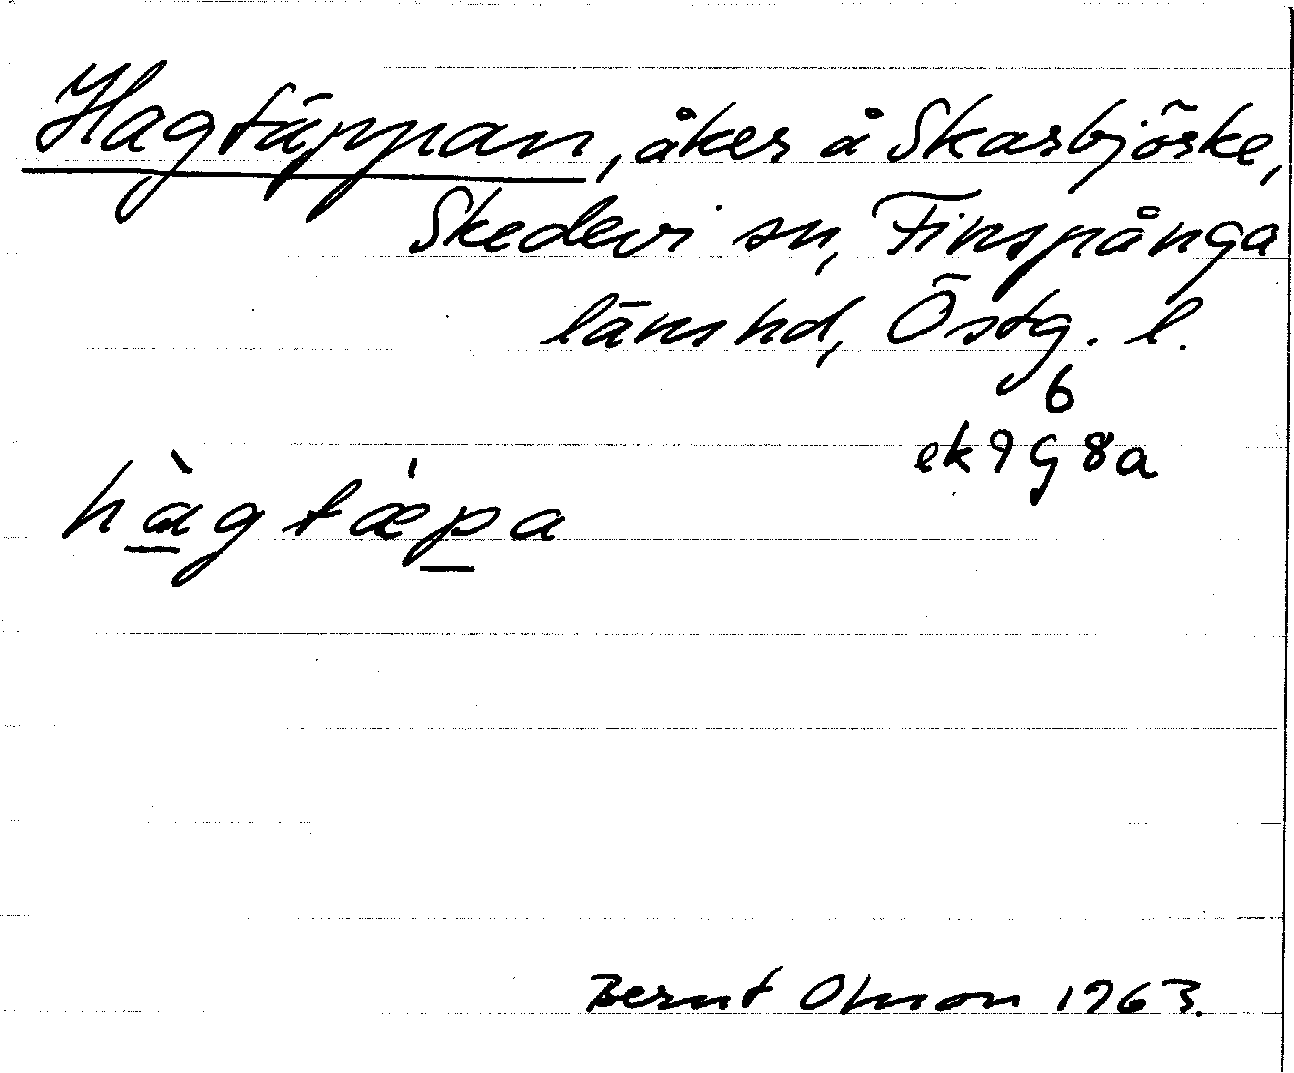 Hagtäppan, åker å Skarbjörke,
Skedevi sn, Finspånga
läns hd, Östg. l.
6
ek 9 G 8a
hàgtæ̍pa
Bernt Olsson 1963.